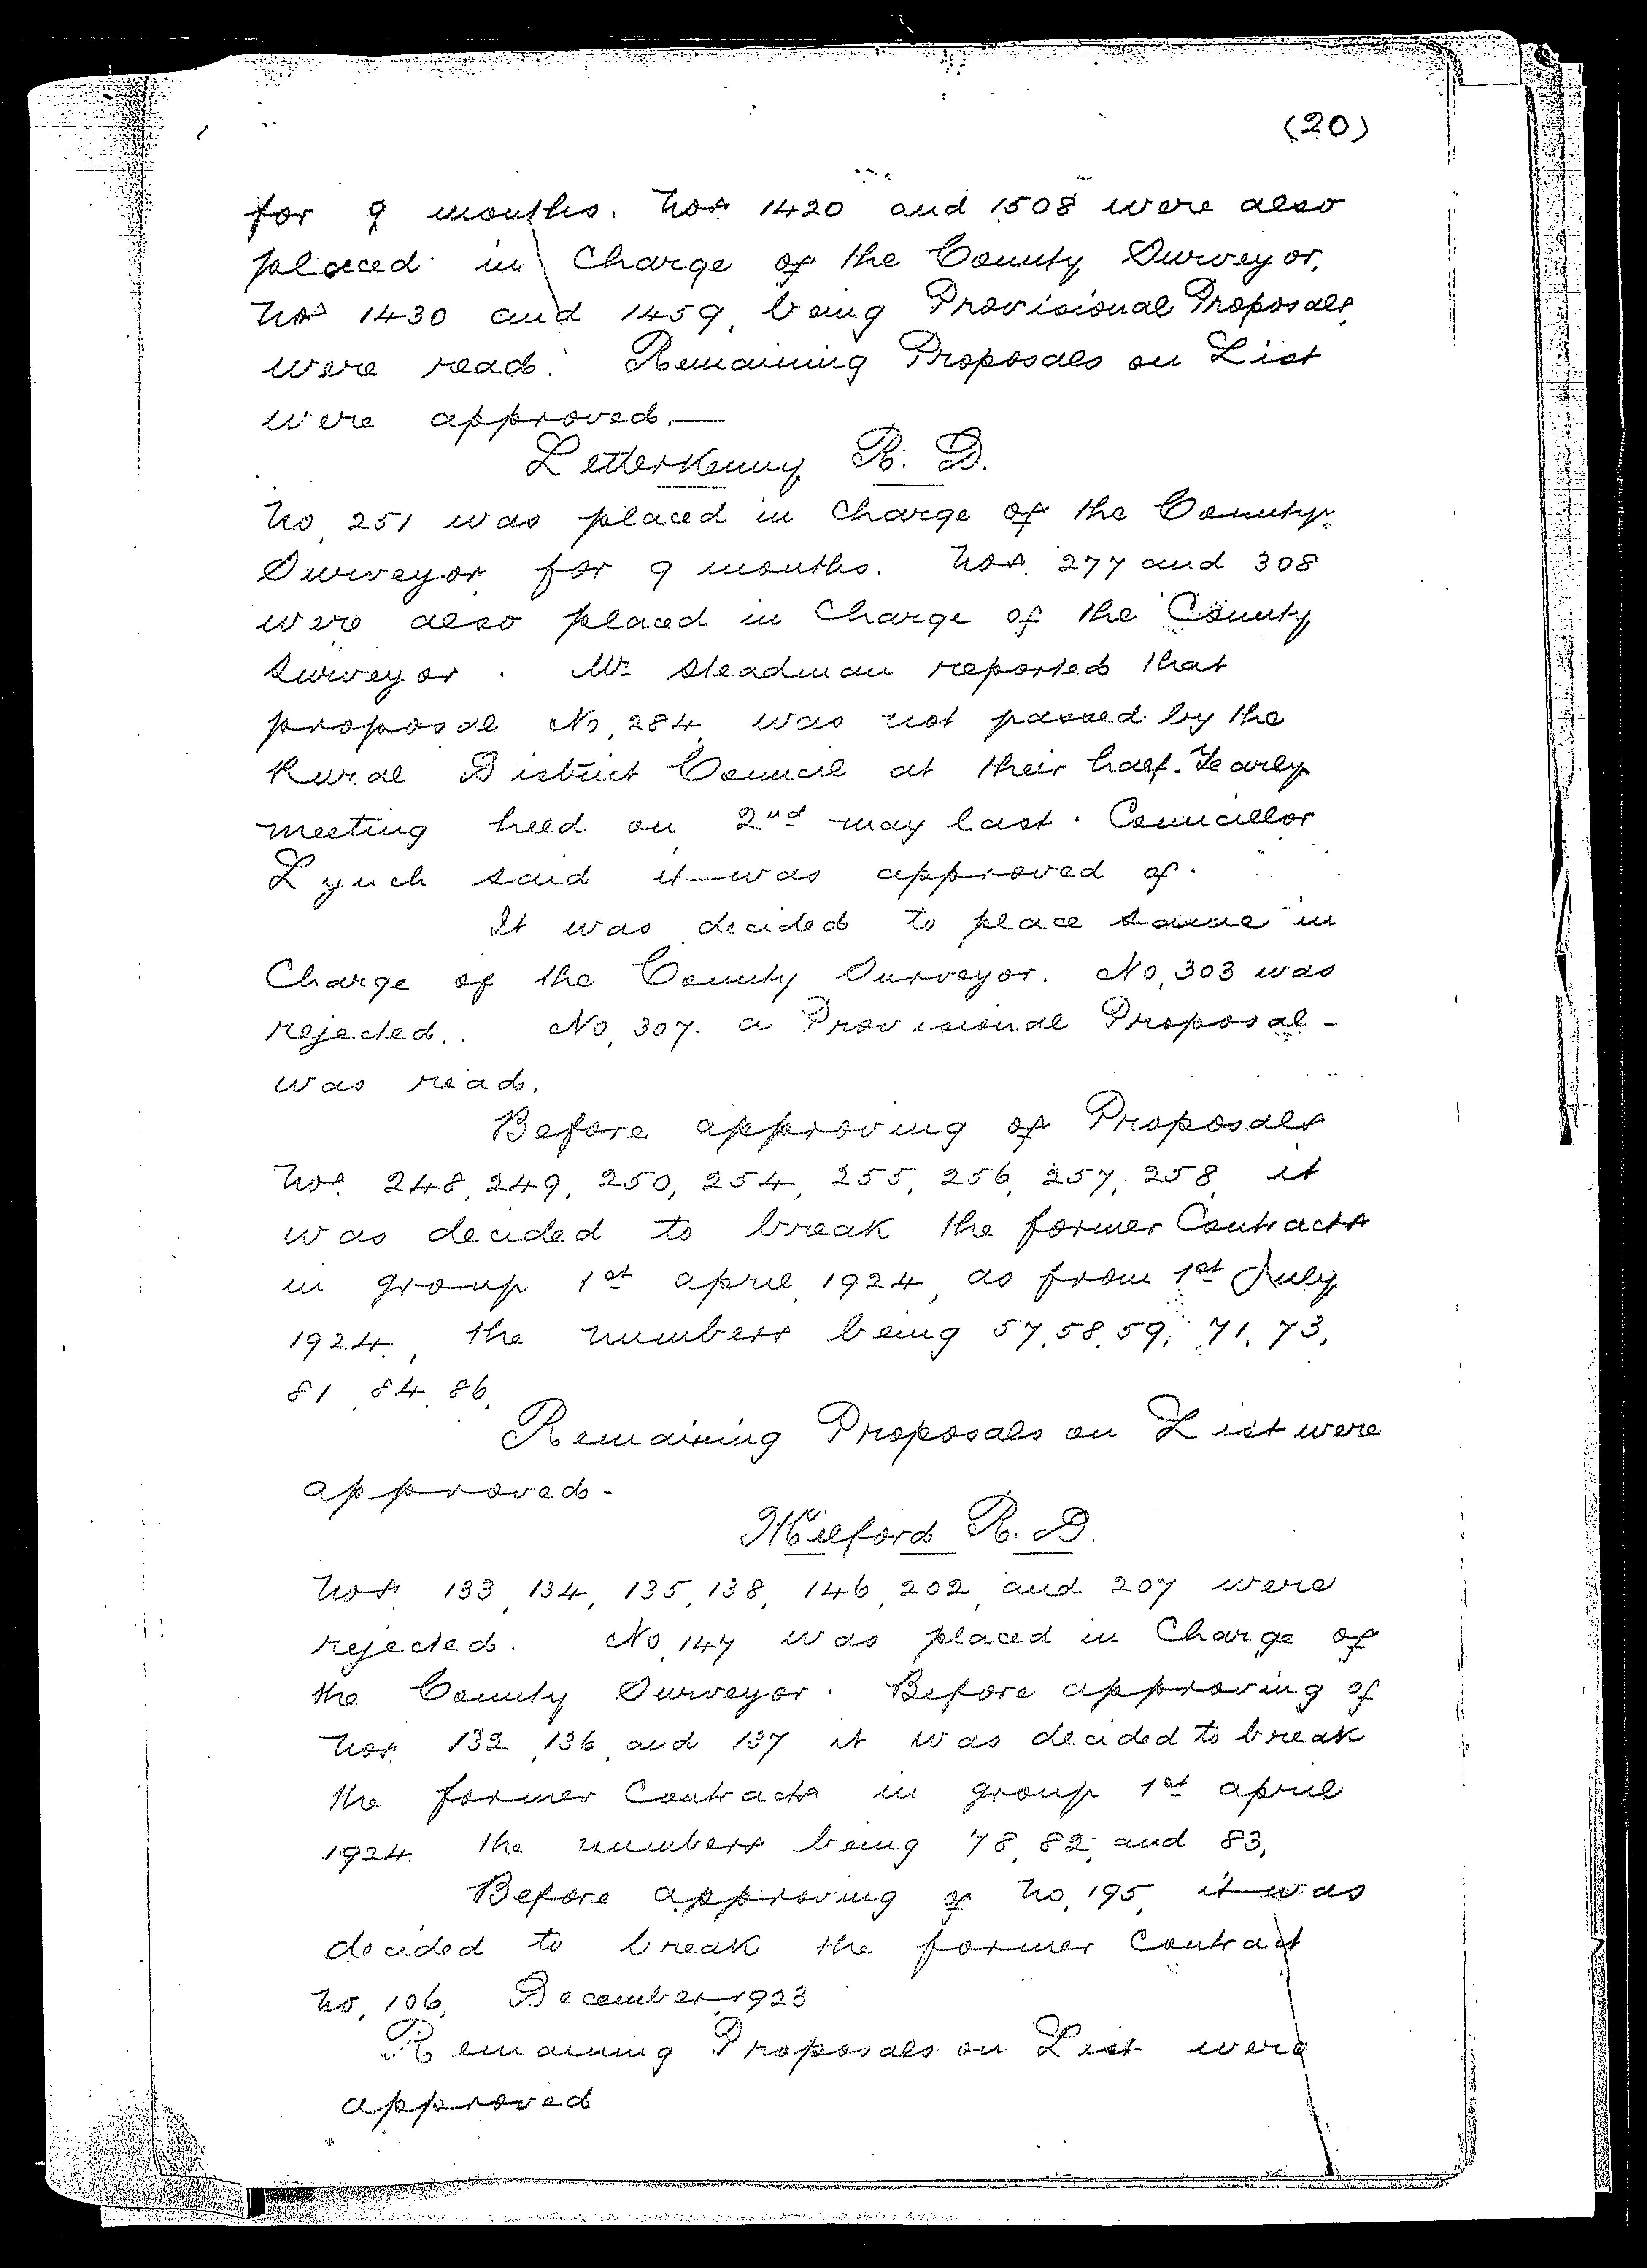 (20)
for 9 months. Nos 1420 and 1508 were also
placed in Charge of the County Surveyor,
Nos 1430 and 1459, being Provisional Proposals,
were read. Remaining Proposals on List
were approved.—
Letterkenny R. D.
No, 251 was placed in Charge of the County
Surveyor for 9 months. Nos. 277 and 308
were also placed in Charge of the County
Surveyor. Mr Steadman reported that
proposal No, 284, was not passed by the
Rural District Council at their half-Yearly
meeting held on 2nd May last. Councillor
Lynch said it was approved of.
It was decided to place same in
Charge of the County Surveyor. No, 303 was
rejected. No, 307. a Provisional Proposal -
was read.
Before approving of Proposals
Nos. 248, 249, 250, 254, 255, 256, 257, 258, it
was decided to break the former Contracts
in group 1st april, 1924, as from 1st July
1924, the numbers being 57, 58, 59, 71, 73,
81, 84, 86,
Remaining Proposals on List were
approved-
Milford R. D.
Nos. 133, 134, 135, 138, 146, 202, and 207 were
rejected. No, 147 was placed in Charge of
the County Surveyor. Before approving of
Nos. 132, 136, and 137 it was decided to break
the former Contracts in group 1st april
1924. the numbers being 78, 82, and 83,
Before approving of No, 195, it was
decided to break the former Contract
No, 106, December, 1923
Remaining Proposals on List were
approved